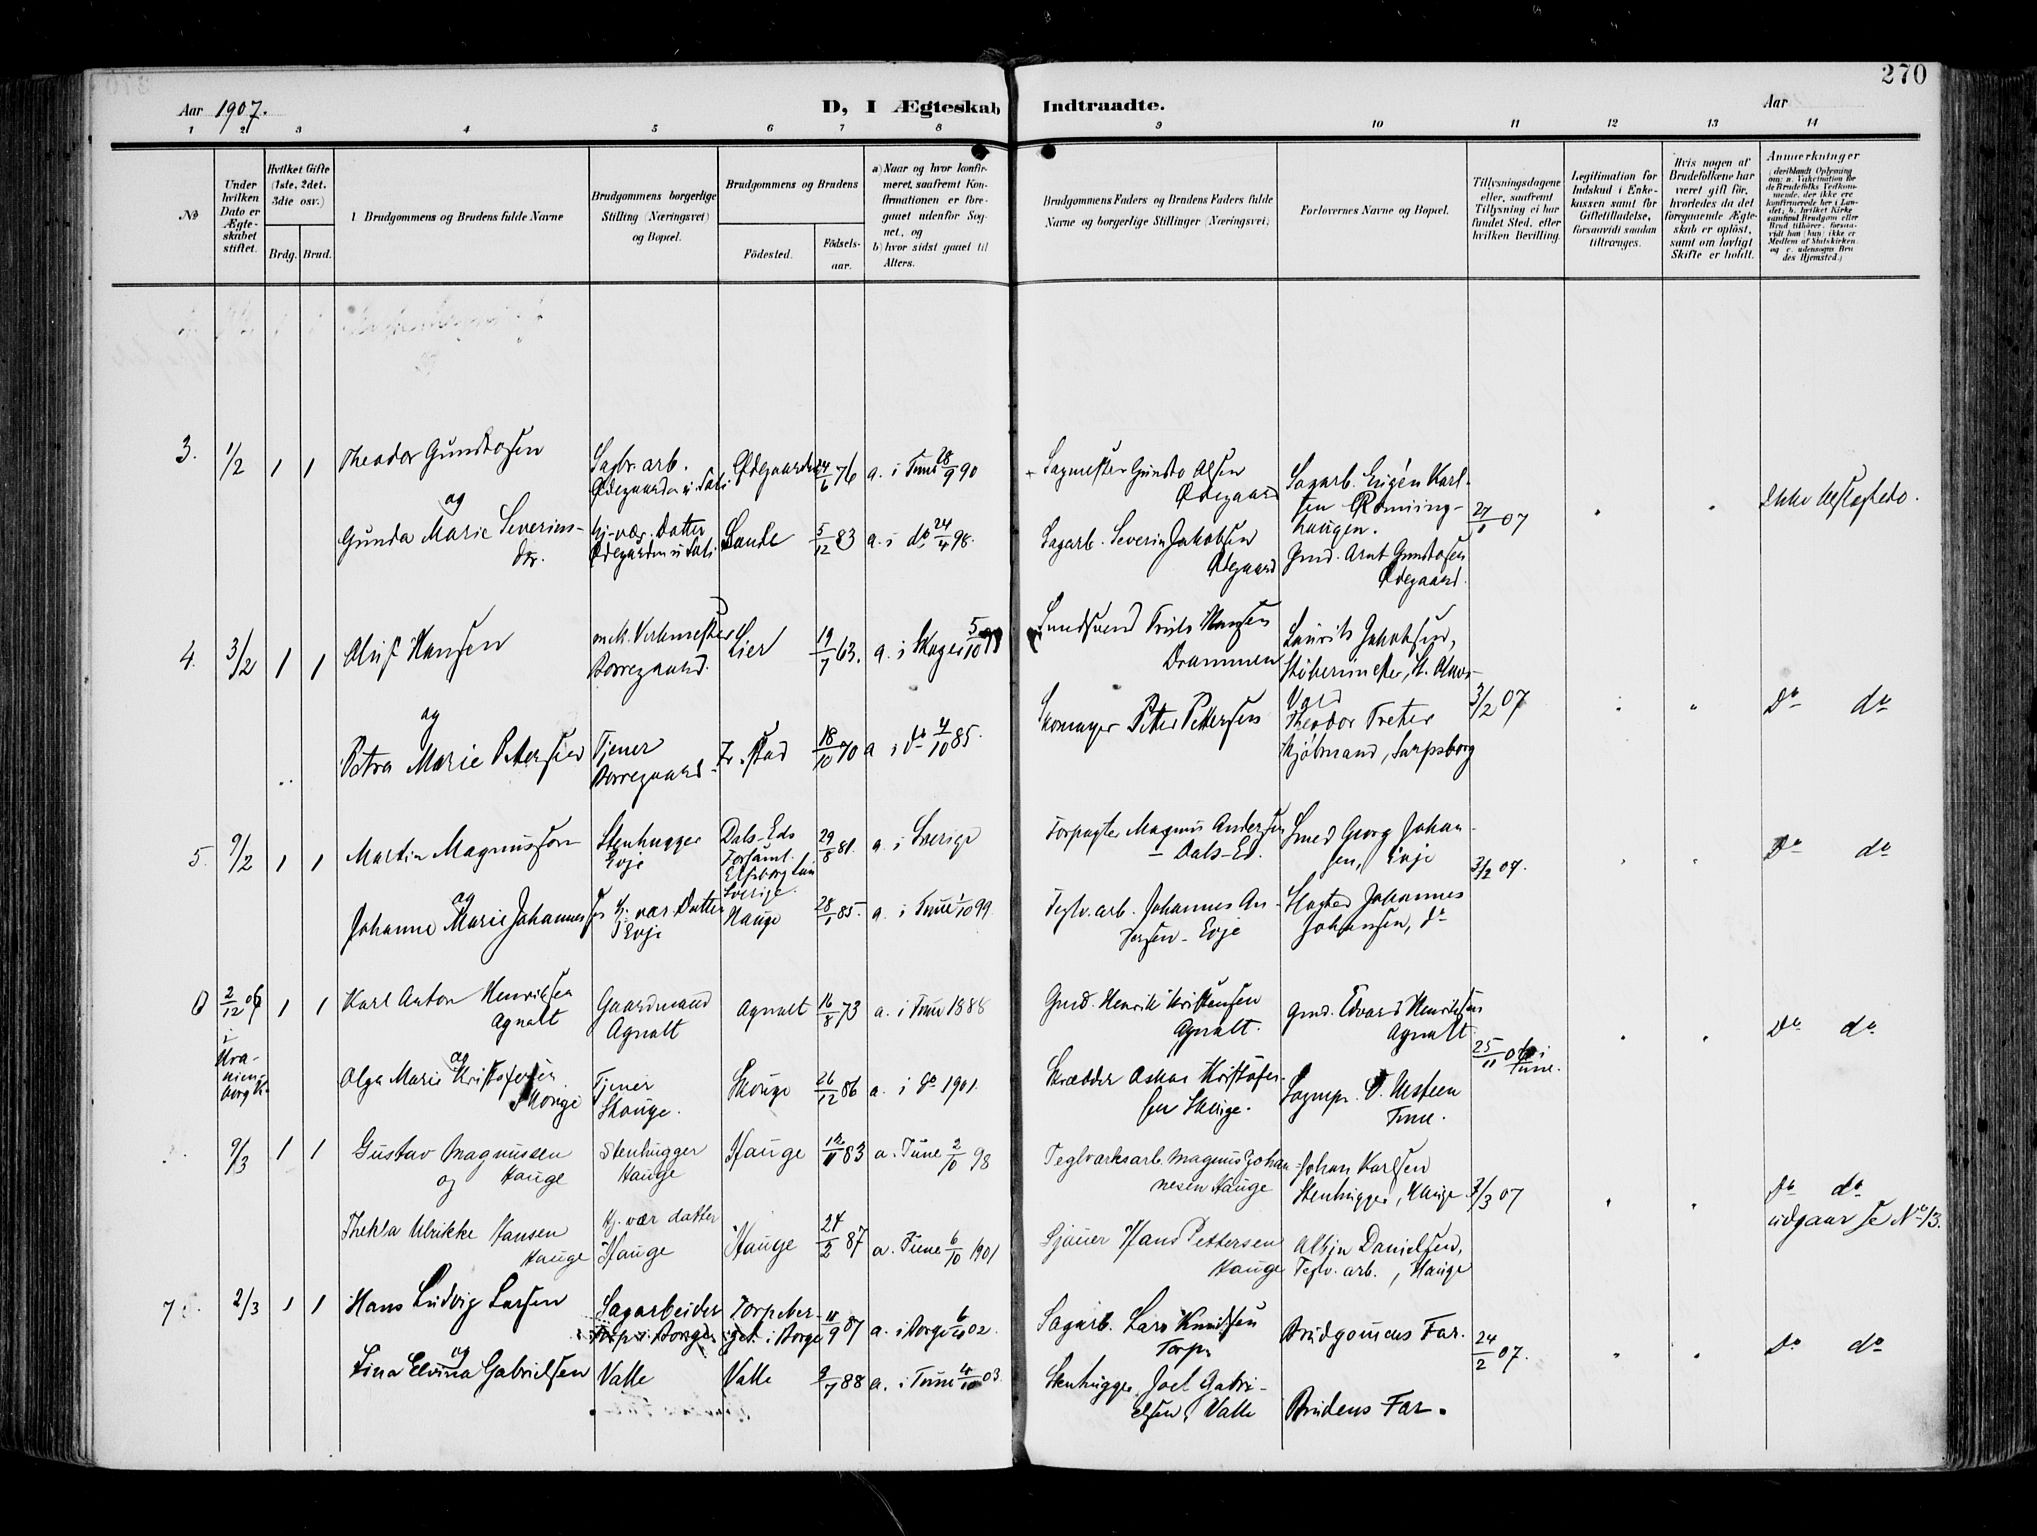 270
Aar 1907.
D, I Ægteskab Indtraadte.
Aar
1 2 3 4 5 6 7 8 9 10 11 12 13 14
No
Under hvilken Dato er Ægteskabet stiftet.
Hvilket Gifte (1ste, 2det, 3die osv.)
Brdg. Brud.
Brudgommens og Brudens fulde Navne
Brudgommens borgerlige Stilling (Næringsvei) og Bopæl.
Brudgommens og Brudens
Födested.
Födselsaar.
a) Naar og hvor konfirmeret, saafremt Konfirmationen er foregaaet udenför Sognet, og
b) hvor sidst gaaet til Alters.
Brudgommens Faders og Brudens Faders fulde Navne og borgerlige Stillinger (Næringsvei).
Forlovernes Navne og Bopæl.
Tillysningsdagene eller, saafremt Tillysning ei har fundet Sted, efter hvilken Bevilling.
Legitimation for Indskud i Enkekassen samt for Giftetilladelse, forsaavidt saadan tiltrænges.
Hvis nogen af Brudefolkene har været gift för, hvorledes da det foregaaende Ægteskab er oplöst, samt om lovligt Skifte er holdt.
Anmærkninger
(deriblandt Oplysning om: a. Vakcination for de Brudefolks Vedkommende, der ikke ere konfirmerede her i Landet; b. hvilket Kirkesamfund Brudgom eller Brud tilhörer, forsaavidt han (hun) ikke er Medlem af Statskirken, og c. udensogns Brudes Hjemsted.)
3. 1/2 1 1 Theodor Gundtofsen
Sagbr. arb.
24/6 76 a. i Tune 28/9 90
Sagmester Gundto Olsen
Ødegaard
Sagarb. Eugén Karlsen Rønninghaugen.
27/1 07
og
Gunda Marie Severinsdtr.
hj-vær. Datter
Sande 5/12 83 a. i do 24/4 98.
Sagarb. Severin Jakobsen
Ødegaard
Gmd. Arnt Gundtofsen
Ødegaard.
4. 3/2 1 1 Oluf Hansen
Borregaard.
Lier 19/7 63. a. i
Truls Hansen
Drammen
Laurits Jakobsen,
3/2 07
do do
og
Petra Marie Petersen
Tjener
Borregaard
Fr.stad 18/10 70 a i do 4/10 85.
Skomager Petter Pettersen
Theodor Treter
Kjøbmand, Sarpsborg
5. 9/2 1 1 Martin Magnusson
Stenhugger
Evje
Dals-Eds
Forsaml.
Elfsborg län
Sverige.
29/8 81. a. i Sverige
Forpagter Magnus Andersen
– Dals-Ed.
Smed Georg Johansen, Evje
3/2 07.
do do
og
Johanne Marie Johannesen
hj. vær Datter
Evje
Hauge 28/1 85. a. i Tune 1/10 99
Teglv.arb. Johannes Andersen – Evje
Johannes
Johansen, do
2/12 06
i
Uranienborg K.
1 1 Karl Anton Henriksen
Agnalt
Gaardmand
Agnalt
Agnalt 16/8 73 a. i Tune 1888
Gmd. Henrik Kristensen
Agnalt.
Gmd. Edvard Henriksen
Agnalt
25/11 06 i Tune.
do do
og
Olga Marie Kristofersen
Skouge
Tjener
Skouge.
Skouge 26/12 86 a. i do 1901.
Skrædder Oskar Kristofersen Skouge.
Tune.
9/3 1 1 Gustav Magnussen
Hauge
og
Stenhugger
Hauge
Hauge 83 a. Tune 2/10 98
Teglværksarb. Magnus Johannesen Hauge
Johan Karlsen
Stenhugger, Hauge
3/3 07
do do
udgaar se No 13.
Thekla Ulrikke Hansen
Hauge
Hj. vær datter
Hauge
Hauge 24/2 87 a. Tune 6/10 1901
Sjauer Hans Pettersen
Hauge
Albin Danielsen,
Teglv. arb., Hauge
7. 2/3 1 1 Hans Ludvig Larsen
Sagarbeider
Torp i Borge
Torpeberget i Borge
11/9 87 a. i Borge 02.
Sagarb. Lars Knudsen
Torp.
Brudgomens Far.
24/2 07.
do do
og
Lina Elvina Gabrielsen
Valle
Valle 9/7 88 a. i Tune 4/10 03.
Stenhugger Joel Gabrielsen, Valle
Brudens Far.